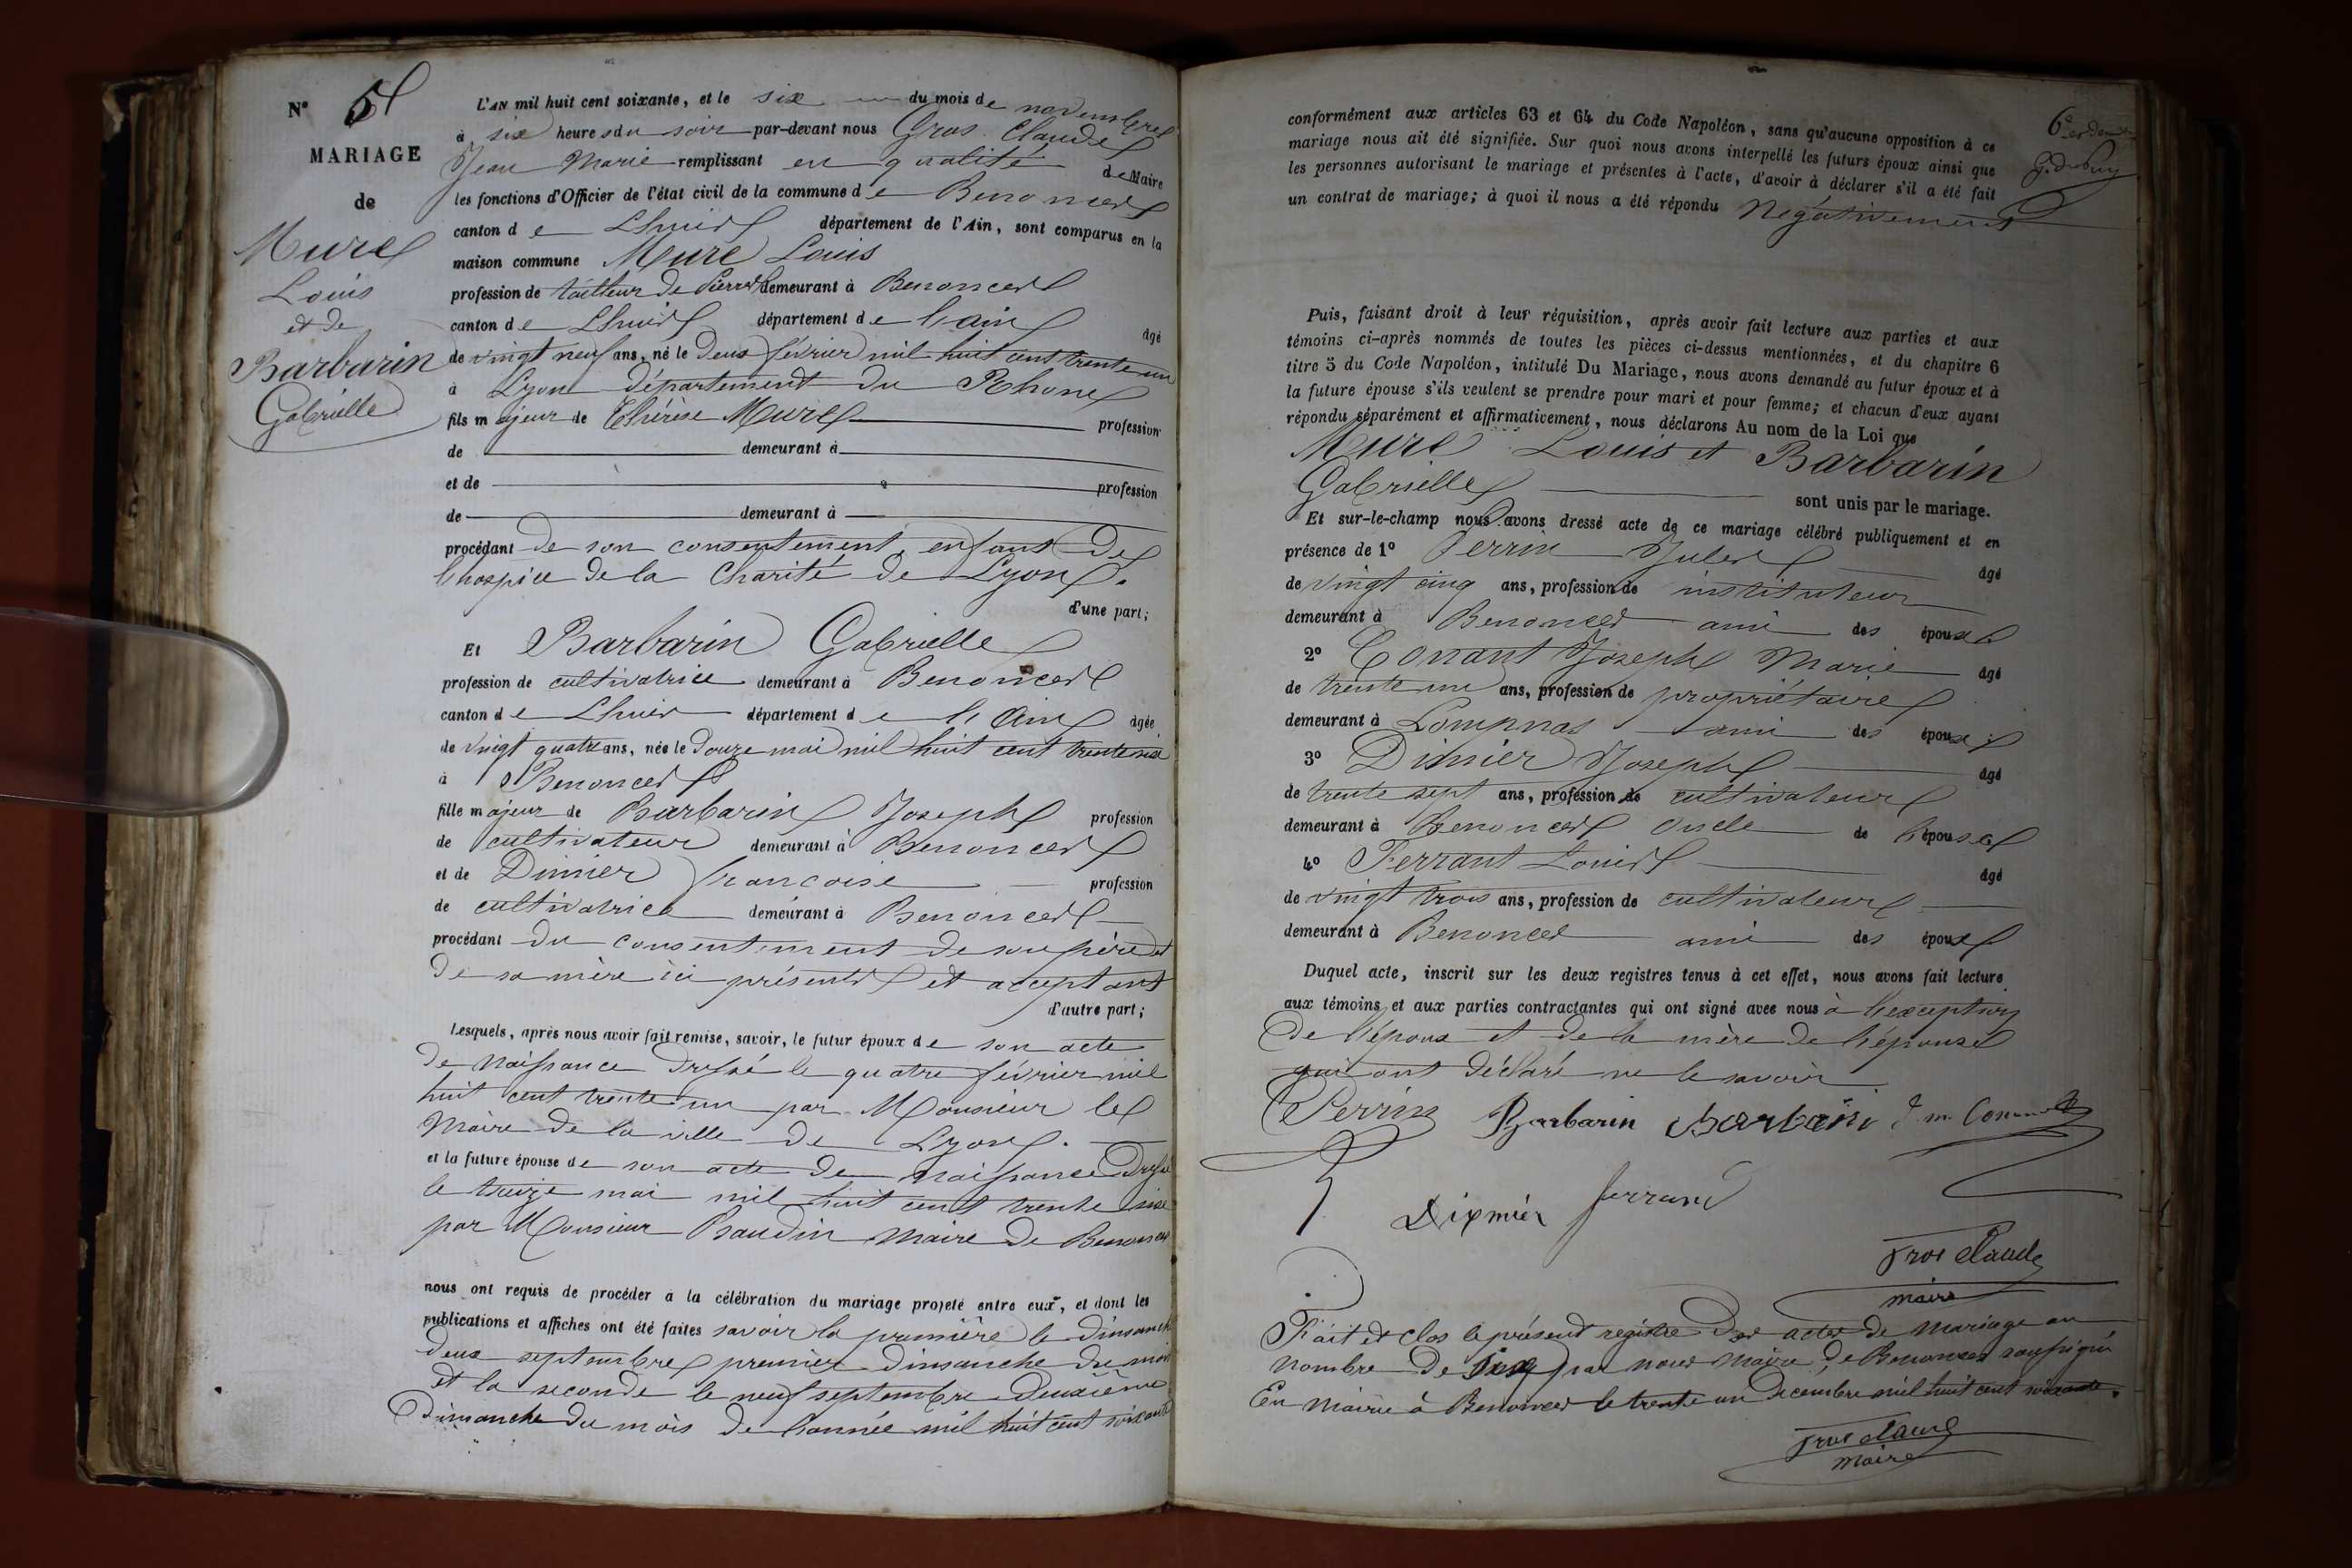 N° 5
MARIAGE
de
Mure
Louis
et de
Barbarin
Gabrielle
L'AN mil huit cent soixante, et le six du mois de novembre
à six heures du soir par-devant nous Gros Claude
Jean Marie remplissant en qualité de Maire
les fonctions d'Officier de l'état civil de la commune de Benonces
canton de Lhuis département de l'Ain, sont comparus en la
maison commune Mure Louis
profession de tailleur de Pierres demeurant à Benonces
canton de Lhuis département de l'ain âgé
de vingt neuf ans, né le deux février mil huit cent trente un
à Lyon département du Rhone
fils majeur de Thérèse Mure profession
de demeurant à
et de profession
de demeurant à
procédant de son consentement, enfant de
l'hospice de la Charité de Lyon.
d'une part;
Et Barbarin Gabrielle
profession de cultivatrice demeurant à Benonces
canton de Lhuis département de l'Ain âgée
de vingt quatre ans, née le douze mai mil huit cent trente six
à Benonces
fille majeur de Barbarin Joseph profession
de cultivateur demeurant à Benonces
et de Dimier francoise profession
de cultivatrice demeurant à Benonces
procédant du consentement de son père et
de sa mère ici présents et acceptant
d'autre part;
Lesquels, après nous avoir fait remise, savoir, le futur époux de son acte
de Naissance dressé le quatre février mil
huit cent trente un par Monsieur le
Maire de la ville de Lyon.
et la future épouse de son acte de Naissance Dressé
le treize mai mil huit cent trente six
par Monsieur Baudin Maire de Benonces
nous ont requis de procéder à la célébration du mariage projeté entre eux, et dont les
publications et affiches ont été faites savoir la première le dimanche
deux septembre premier dimanche du mois
et la seconde le neuf septembre deuxième
Dimanche du mois de l'année mil huit cent soixante
conformément aux articles 63 et 64 du Code Napoléon, sans qu'aucune opposition à ce
mariage nous ait été signifiée. Sur quoi nous avons interpellé les futurs époux ainsi que
les personnes autorisant le mariage et présentes à l'acte, d'avoir à déclarer s'il a été fait
un contrat de mariage; à quoi il nous a été répondu Négativement
6e
Puis, faisant droit à leur réquisition, après avoir fait lecture aux parties et aux
témoins ci-après nommés de toutes les pièces ci-dessus mentionnées, et du chapitre 6
titre 5 du Code Napoléon, intitulé Du Mariage, nous avons demandé au futur époux et à
la future épouse s'ils veulent se prendre pour mari et pour femme; et chacun d'eux ayant
répondu séparément et affirmativement, nous déclarons Au nom de la Loi que
Mure Louis et Barbarin
Gabrielle sont unis par le mariage.
Et sur-le-champ nous avons dressé acte de ce mariage célébré publiquement et en
présence de 1° Perrin Jules âgé
de vingt cinq ans, profession de instituteur
demeurant à Benonces ami des époux
2° Conant Joseph Marie âgé
de trente un ans, profession de propriétaire
demeurant à Lompnas ami des époux
3° Dimier Joseph âgé
de trente sept ans, profession de cultivateur
demeurant à Benonces Oncle de l'épouse
4° Ferrant Louis âgé
de vingt trois ans, profession de cultivateur
demeurant à Benonces ami des époux
Duquel acte, inscrit sur les deux registres tenus à cet effet, nous avons fait lecture
aux témoins et aux parties contractantes qui ont signé avec nous à l'exception
de l'époux et de la mère de l'épouse
qui ont déclaré ne le savoir
Perrin Barbarin Barbarin
Dixmier ferrand
Gros Claude
maire
Fait et Clos le présent registre des actes de mariage au
nombre de six par nous Maire de Benonces soussigné
En Mairie à Benonces le trente un Decembre mil huit cent soixante.
Gros Claude
maire